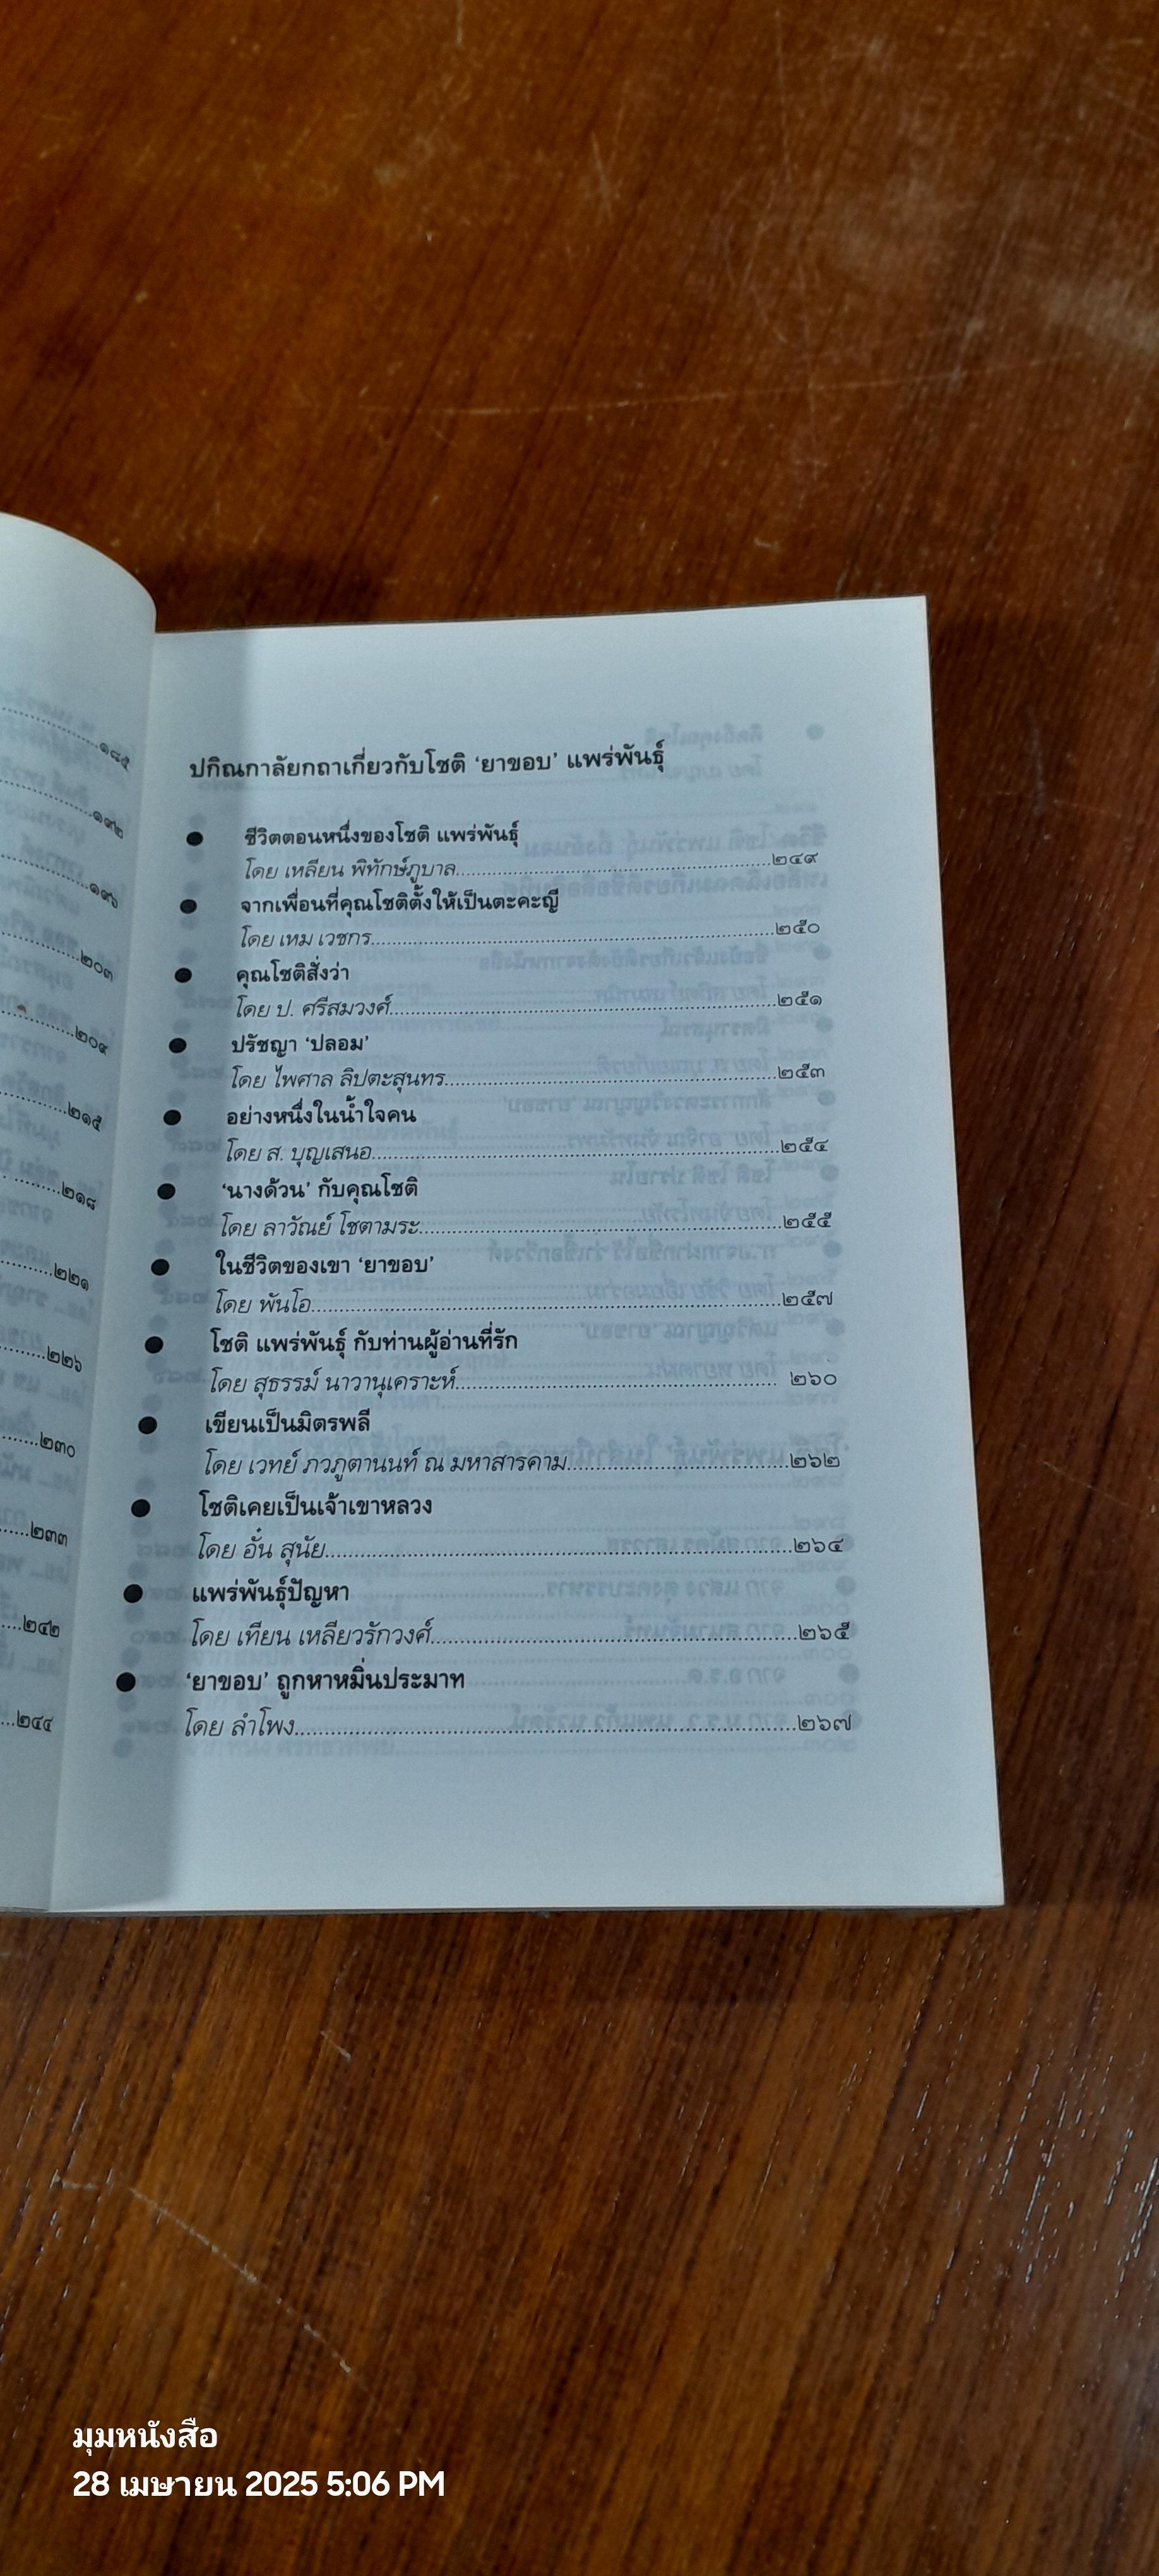 ๑๘๕
๑๙๒
๑๙๖
๒๐๓
๒๐๙
๒๑๕
๒๑๘
๒๒๑
๒๒๖
๒๓๐
๒๓๓
๒๔๒
๒๔๔
ปกิณกาลัยกถาเกี่ยวกับโชติ ‘ยาขอบ’ แพร่พันธุ์
● ชีวิตตอนหนึ่งของโชติ แพร่พันธุ์
โดย เหลียน พิทักษ์ภูบาล....................๒๔๙
● จากเพื่อนที่คุณโชติตั้งให้เป็นตะคะญี
โดย เหม เวชกร....................๒๕๐
● คุณโชติสั่งว่า
โดย ป. ศรีสมวงศ์....................๒๕๑
● ปรัชญา ‘ปลอม’
โดย ไพศาล ลิปตะสุนทร....................๒๕๓
● อย่างหนึ่งในน้ำใจคน
โดย ส. บุญเสนอ....................๒๕๔
● ‘นางด้วน’ กับคุณโชติ
โดย ลาวัณย์ โชตามระ....................๒๕๕
● ในชีวิตของเขา ‘ยาขอบ’
โดย พันโอ....................๒๕๗
● โชติ แพร่พันธุ์ กับท่านผู้อ่านที่รัก
โดย สุธรรม์ นาวานุเคราะห์.................... ๒๖๐
● เขียนเป็นมิตรพลี
โดย เวทย์ ภวภูตานนท์ ณ มหาสารคาม....................๒๖๒
● โชติเคยเป็นเจ้าเขาหลวง
โดย อั๋น สุนัย....................๒๖๔
● แพร่พันธุ์ปัญหา
โดย เทียน เหลียวรักวงศ์....................๒๖๕
● ‘ยาขอบ’ ถูกหาหมิ่นประมาท
โดย ลำโพง....................๒๖๗
มุมหนังสือ
28 เมษายน 2025 5:06 PM